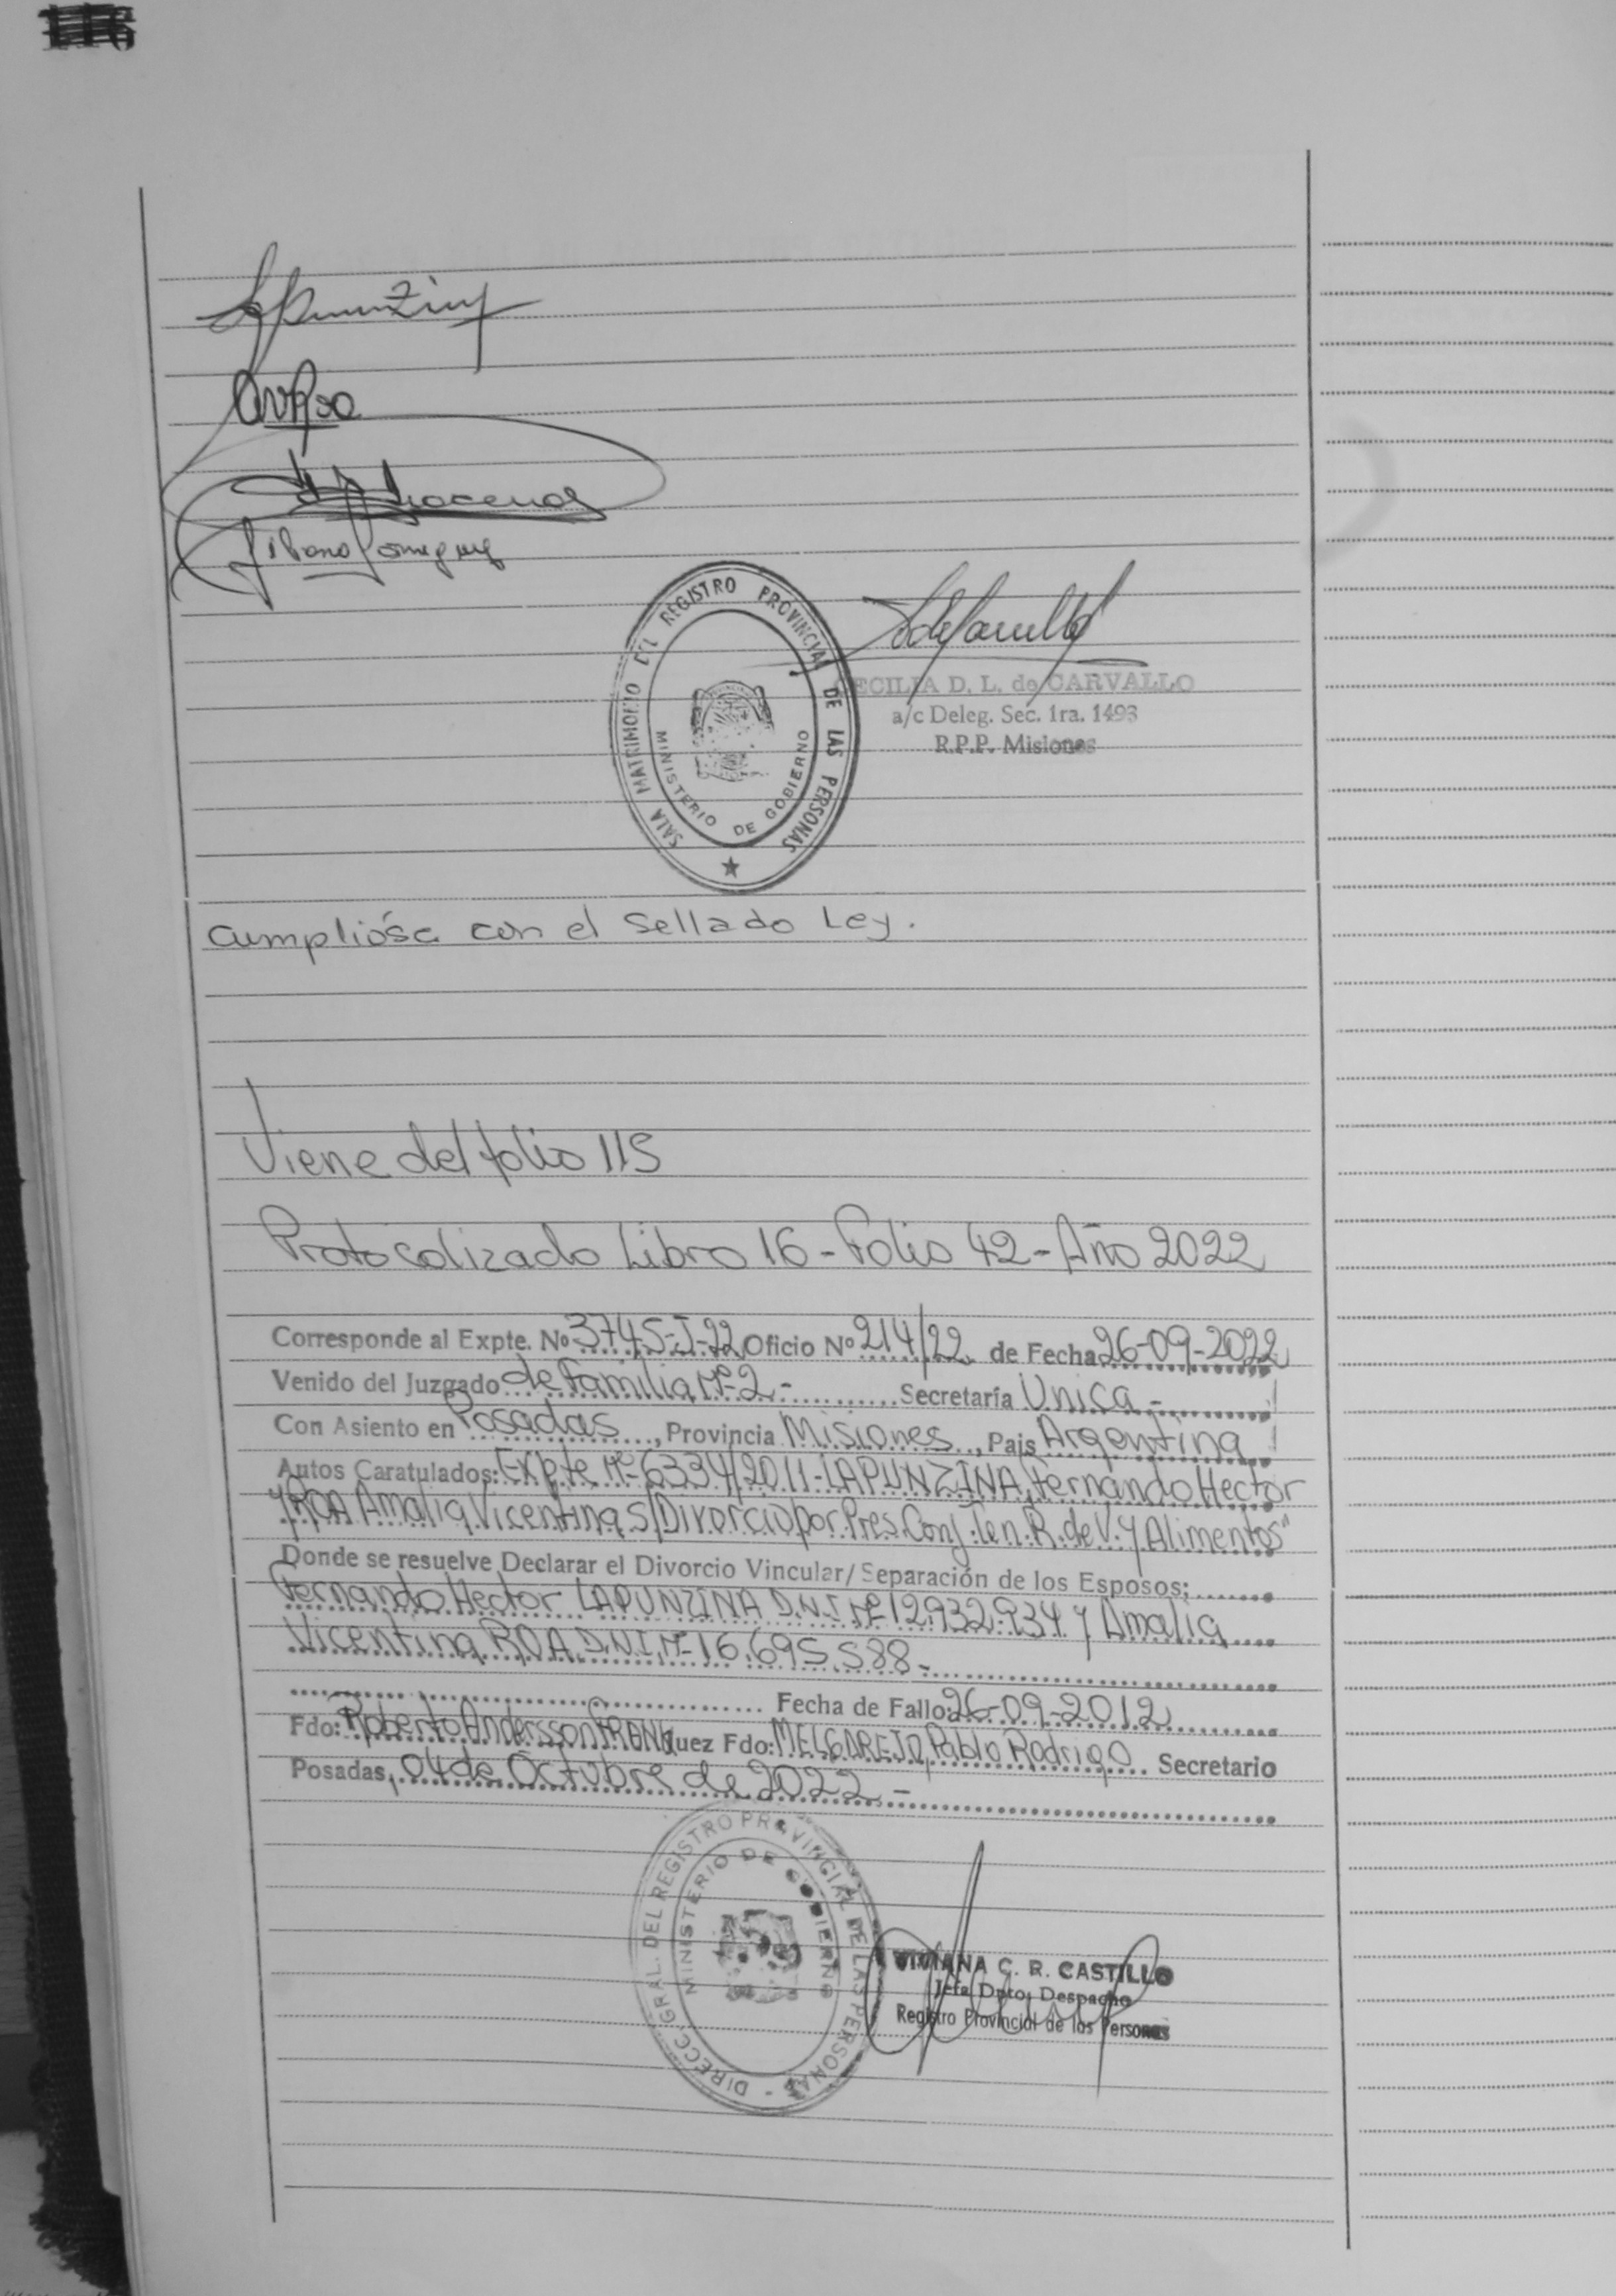 116
SALA MATRIMONIO DEL REGISTRO PROVINCIAL DE LAS PERSONAS
MINISTERIO DE GOBIERNO
CECILIA D. L. de CARVALLO
a/c Deleg. Sec. 1ra. 1493
R.P.P. Misiones
Cumplióse con el Sellado Ley.
Viene del folio 115
Protocolizado Libro 16 - Folio 42 - Año 2022
Corresponde al Expte. Nº 3745-J-22 Oficio Nº 214/22 de Fecha 26-09-2022
Venido del Juzgado de Familia Nº 2 - Secretaría Unica -
Con Asiento en Posadas, Provincia Misiones, Pais Argentina
Autos Caratulados: Expte Nº 6334/2011 - LAPUNZINA, Fernando Hector
y ROA Amalia Vicentina S/Divorcio por Pres. Conj. Ten. R. de V. y Alimentos"
Donde se resuelve Declarar el Divorcio Vincular/Separación de los Esposos:
Fernando Hector LAPUNZINA D.N.I Nº 12.932.934 y Amalia
Vicentina ROA D.N.I. Nº 16.695.588 -
Fecha de Fallo: 26-09-2012
Fdo: Roberto Andersson FRANK Juez Fdo: MELGAREJO, Pablo Rodrigo Secretario
Posadas, 04 de Octubre de 2022 -
DIRECC. GRAL. DEL REGISTRO PROVINCIAL DE LAS PERSONAS -
MINISTERIO DE GOBIERNO
VIVIANA C. R. CASTILLO
Jefa Dpto. Despacho
Registro Provincial de las Personas